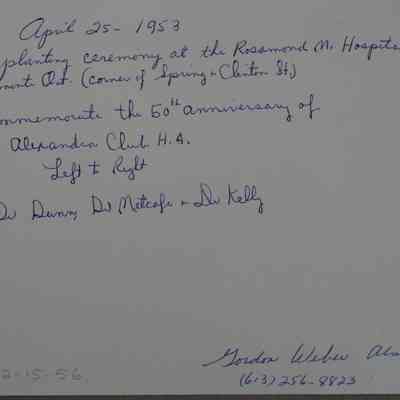 April 25 - 1953
planting ceremony at the Rosamond M. Hospita
mont Ont. (corner of Spring & Clinton St.)
ommemorate the 50th anniversary of
Alexandra Club H.A.
Left to Right
Dr Dunn, Dr Metcalfe & Dr Kelly
Gordon Weber Al
(613) 256-8823
2-15-56